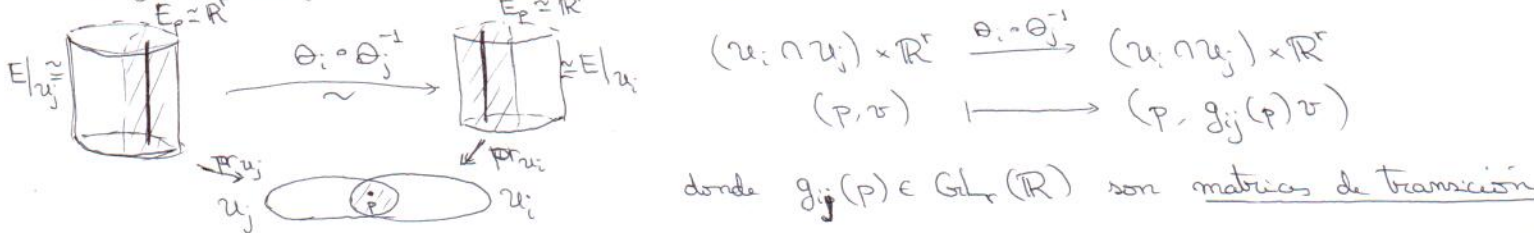 E_p ≃ ℝ^r
E_p ≃ ℝ^r
E|_{U_j} ≃
θ_i ∘ θ_j^{-1}
∼
≃ E|_{U_i}
pr_{U_j}
pr_{U_i}
U_j
p
U_i
(U_i ∩ U_j) × ℝ^r —θ_i ∘ θ_j^{-1}→ (U_i ∩ U_j) × ℝ^r
(p, v) ⟼ (p, g_{ij}(p) v)
donde g_{ij}(p) ∈ GL_r(ℝ) son matrices de transición